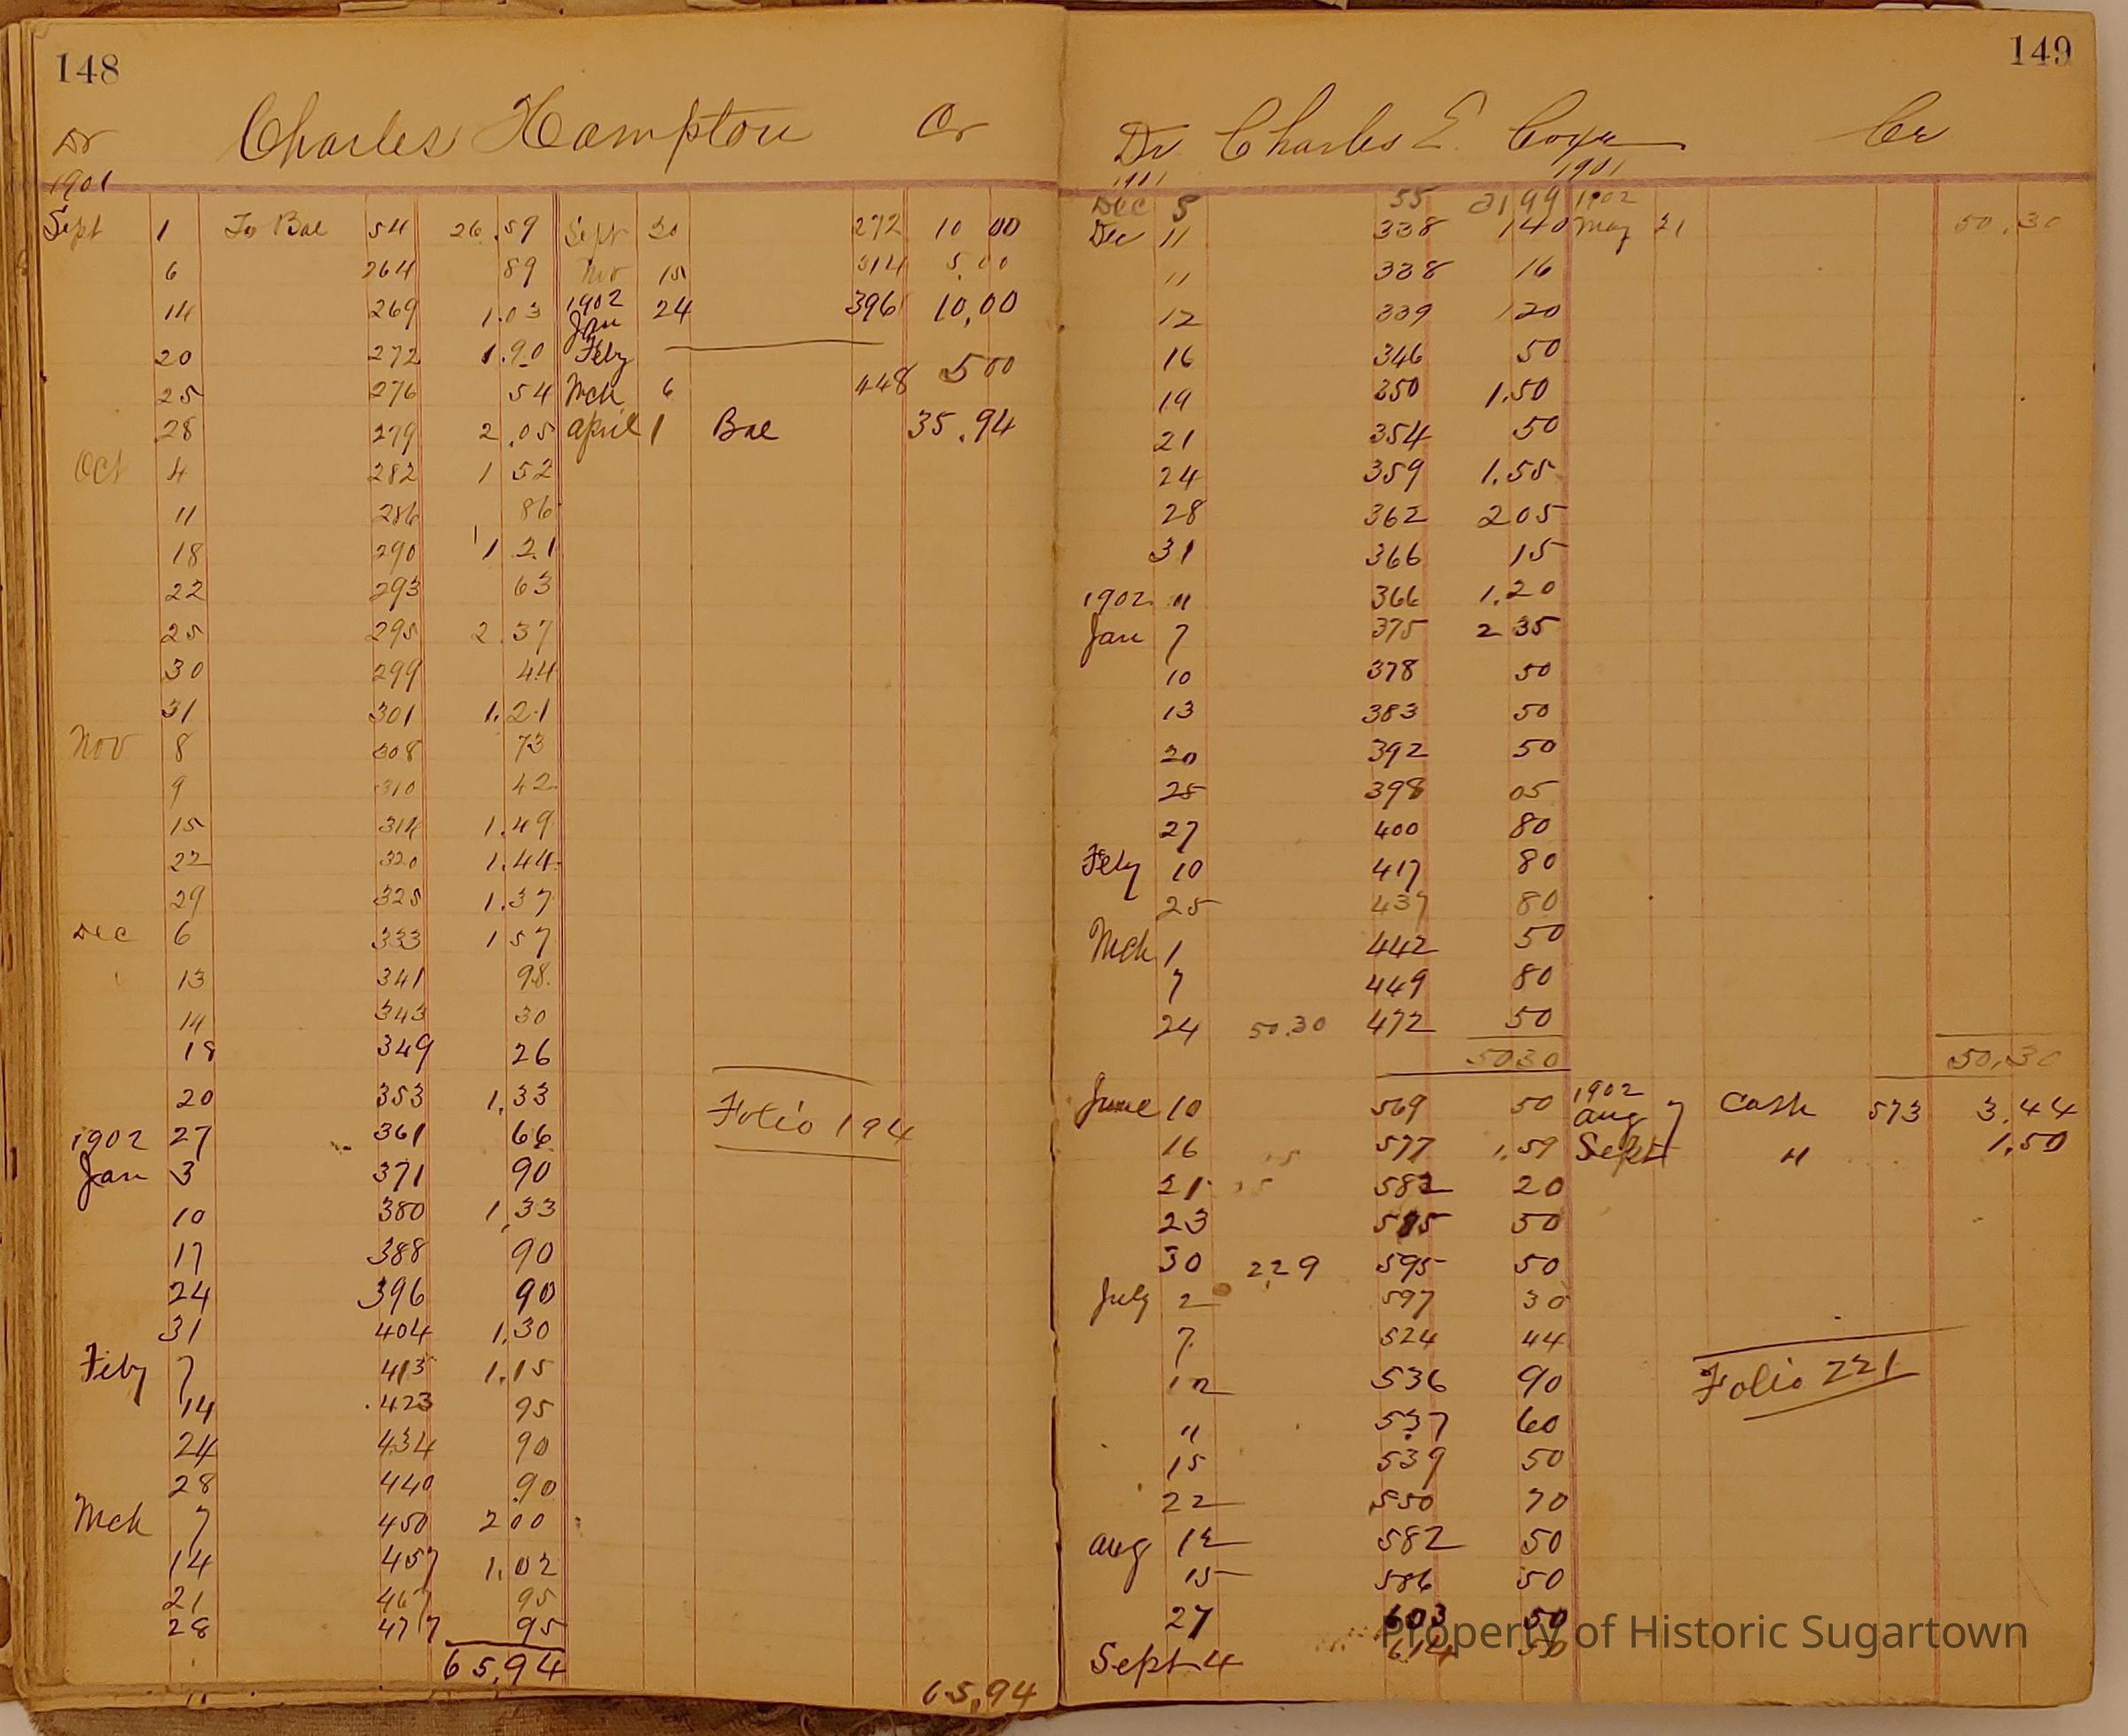 148
Charles Hampton Cr
Dr
1901
Sept 1 To Bal 54 26.59 Sept 30 272 10 00
6 264 89 Nov 15 314 5.00
14 269 1.03 1902 Jan 24 396 10,00
20 272 1.90 Feby
25 276 54 Mch 6 448 500
28 279 2.05 april 1 Bal 35.94
Oct 4 282 1 52
11 286 86
18 290 1 21
22 293 63
25 295 2.37
30 299 44
31 301 1.21
Nov 8 308 73
9 310 42
15 314 1.49
22 320 1.44
29 325 1.37
Dec 6 333 1 57
13 341 98
14 343 30
18 349 26
20 353 1,33
Folio 194
1902 27 361 66
Jan 3 371 90
10 380 1,33
17 388 90
24 396 90
31 404 1,30
Feby 7 413 1,15
14 423 95
24 434 90
28 440 90
Mch 7 450 200
14 457 1,02
21 467 95
28 477 95
65,94
65,94
149
Dr Charles E. Cr
1901 1901
Dec 5 55 2199 1902
Dec 11 338 140 May 21 50.30
11 338 16
12 339 120
16 346 50
19 350 1.50
21 354 50
24 359 1.55
28 362 205
31 366 15
1902 " 366 1.20
Jan 7 375 2 35
10 378 50
13 383 50
20 392 50
25 398 05
27 400 80
Feby 10 417 80
25 437 80
Mch 1 442 50
7 449 80
24 50.30 472 50
5030 50.30
June 10 569 50 1902 aug 7 Cash 573 3.44
16 577 1,59 Sept " 1,50
21 582 20
23 585 50
30 2.29 595 50
July 2 597 30
7 524 44
12 536 90
Folio 221
" 537 60
15 539 50
22 550 70
aug 12 582 50
15 586 50
27 603 50
Sept 4 614 50
Property of Historic Sugartown